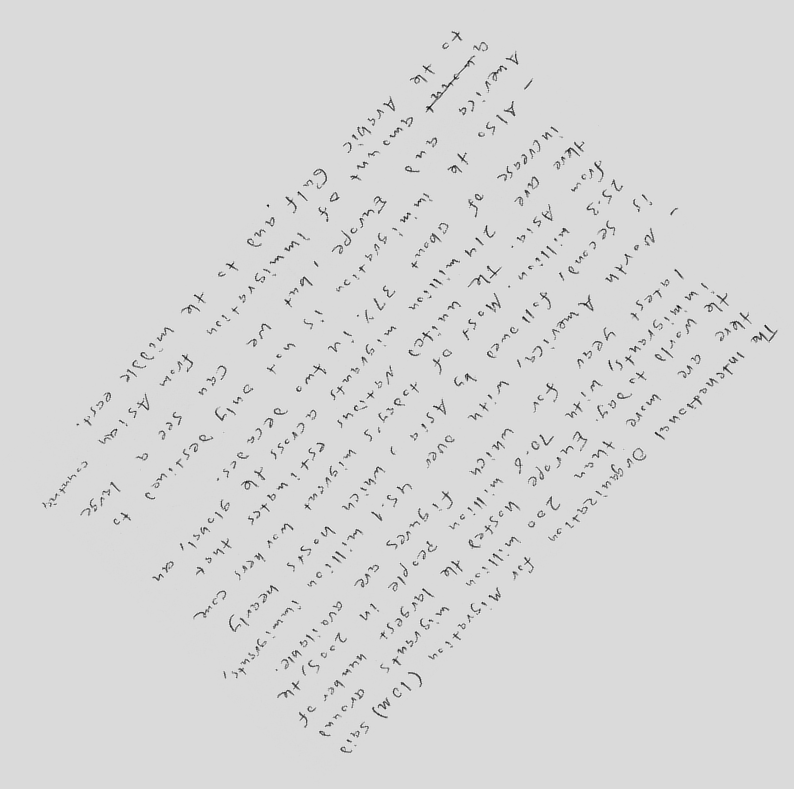 The international Organization for Migration (IOM) said
there are more than 200 million migrants around
the world today. Europe hosted the largest number of
immigrants, with 70.6 million people in 2005, the
latest year for which figures are available.
- North America, with over 45.1 million immigrants,
is second, followed by Asia, which hosts nearly
25.3 million. Most of today's migrant workers come
from Asia. the united Nations estimates that
there are 214 million migrants across the global, an
increase of about 37% in two decades.
- Also the immigration is not only destined to
America and Europe, but we can see a large
amount of immigration from Asian countries
to the Arabic Gulf and to the middle east.